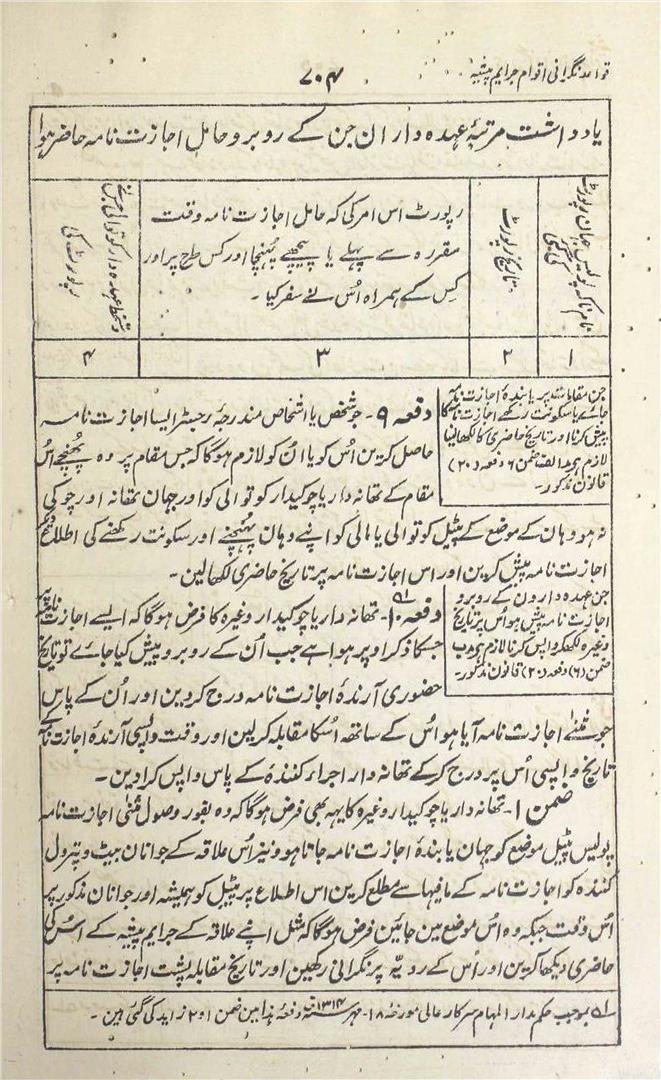 قواعد نگرانی اقوام جرایم پیشہ
۷۰۴
یادداشت مرتبۂ عہدہ داران جن کے روبرو حامل اجازت نامہ حاضر ہوا
نام ناکہ پولیس جہان رپورٹ کی گئی
تاریخ رپورٹ
رپورٹ اس امر کی کہ حامل اجازت نامہ وقت
مقررہ سے پہلے یا پیچھے پُہنچا اور کس طرح پر اور
کِس کے ہمراہ اُس نے سفر کیا ۔
دستخط عہدہ دار کوتوالی جس نے
رپورٹ کی
۱
۲
۳
۴
جن مقامات پر یابندۂ اجازت نامہ
جاے یا سکونت رکھے اجازت نامہ کا
پیش کرنا اور تاریخ حاضری کا لکھا لینا
لازم ہی (الف ضمن ۶ دفعہ ۲۰)
قانون مذکور ۔
دفعہ ۹ ۔ جو شخص یا اشخاص مندرجۂ رجسٹر ایسا اجازت نامہ
حاصل کرین اُس کو یا اُن کو لازم ہوگا کہ جس مقام پر وہ پُہنچے اُس
مقام کے تھانہ دار یا چوکیدار کوتوالی کو اور جہان تھانہ اور چوکی
نہ ہو وہان کے موضع کے پٹیل کوتوالی یا مالی کو اپنے وہان پہنچنے اور سکونت رکھنے کی اطلاع دیکر
اجازت نامہ پیش کرین اور اس اجازت نامہ پر تاریخ حاضری لکھا لین ۔
جن عہدہ دارون کے روبرو
اجازت نامہ پیش ہو اُس پر تاریخ
وغیرہ لکھکر واپس کرنا لازم ہی (ب
ضمن (۶) دفعہ (۲۰) قانون مذکور ۔
دفعہ ۱۰ ۵۱؎ ۔ تھانہ دار یا چوکیدار وغیرہ کا فرض ہوگا کہ ایسے اجازت نامہ پر
جسکا ذکر اوپر ہوا ہے جب اُن کے روبرو پیش کیا جاے تو تاریخ
حضوری آرندۂ اجازت نامہ درج کر دین اور اُن کے پاس
جو مُثنےٰ اجازت نامہ آیا ہو اُس کے ساتھ اُسکا مقابلہ کرلین اور وقت واپسی آرندۂ اجازت نامہ کے
تاریخ واپسی اُس پر درج کرکے تھانہ دار اجراء کنندہ کے پاس واپس کرا دین ۔
ضمن ۱ ۔ تھانہ دار یا چوکیدار وغیرہ کا یہہ بھی فرض ہوگا کہ وہ بفور وصول مُثنیٰ اجازت نامہ
پولیس پٹیل موضع کو جہان یابندۂ اجازت نامہ جاتا ہو و نیز اُس علاقہ کے جوانان بیٹ و پترول
کنندہ کو اجازت نامہ کے مافیہا سے مطلع کرین اس اطلاع پر پٹیل کو ہمیشہ اور جوانان مذکور پر
اُس وقت جبکہ وہ اُس موضع مین جائین فرض ہوگا کہ مثل اپنے علاقہ کے جرایم پیشہ کے اُس کی
حاضری دیکھا کرین اور اُس کے رویّہ پر نگرانی رکھین اور تاریخ مقابلہ پشت اجازت نامہ پر
۵۱؎ بموجب حکم مدار المہام سرکار عالی مورخہ ۱۸ ۔ مہر ۱۳۱۴ سنہ ف دفعۂ ہذا مین ضمن ۱ و ۲ زاید کی گئی ہین ۔